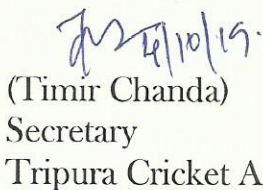 4/10/19.
(Timir Chanda)
Secretary
Tripura Cricket A